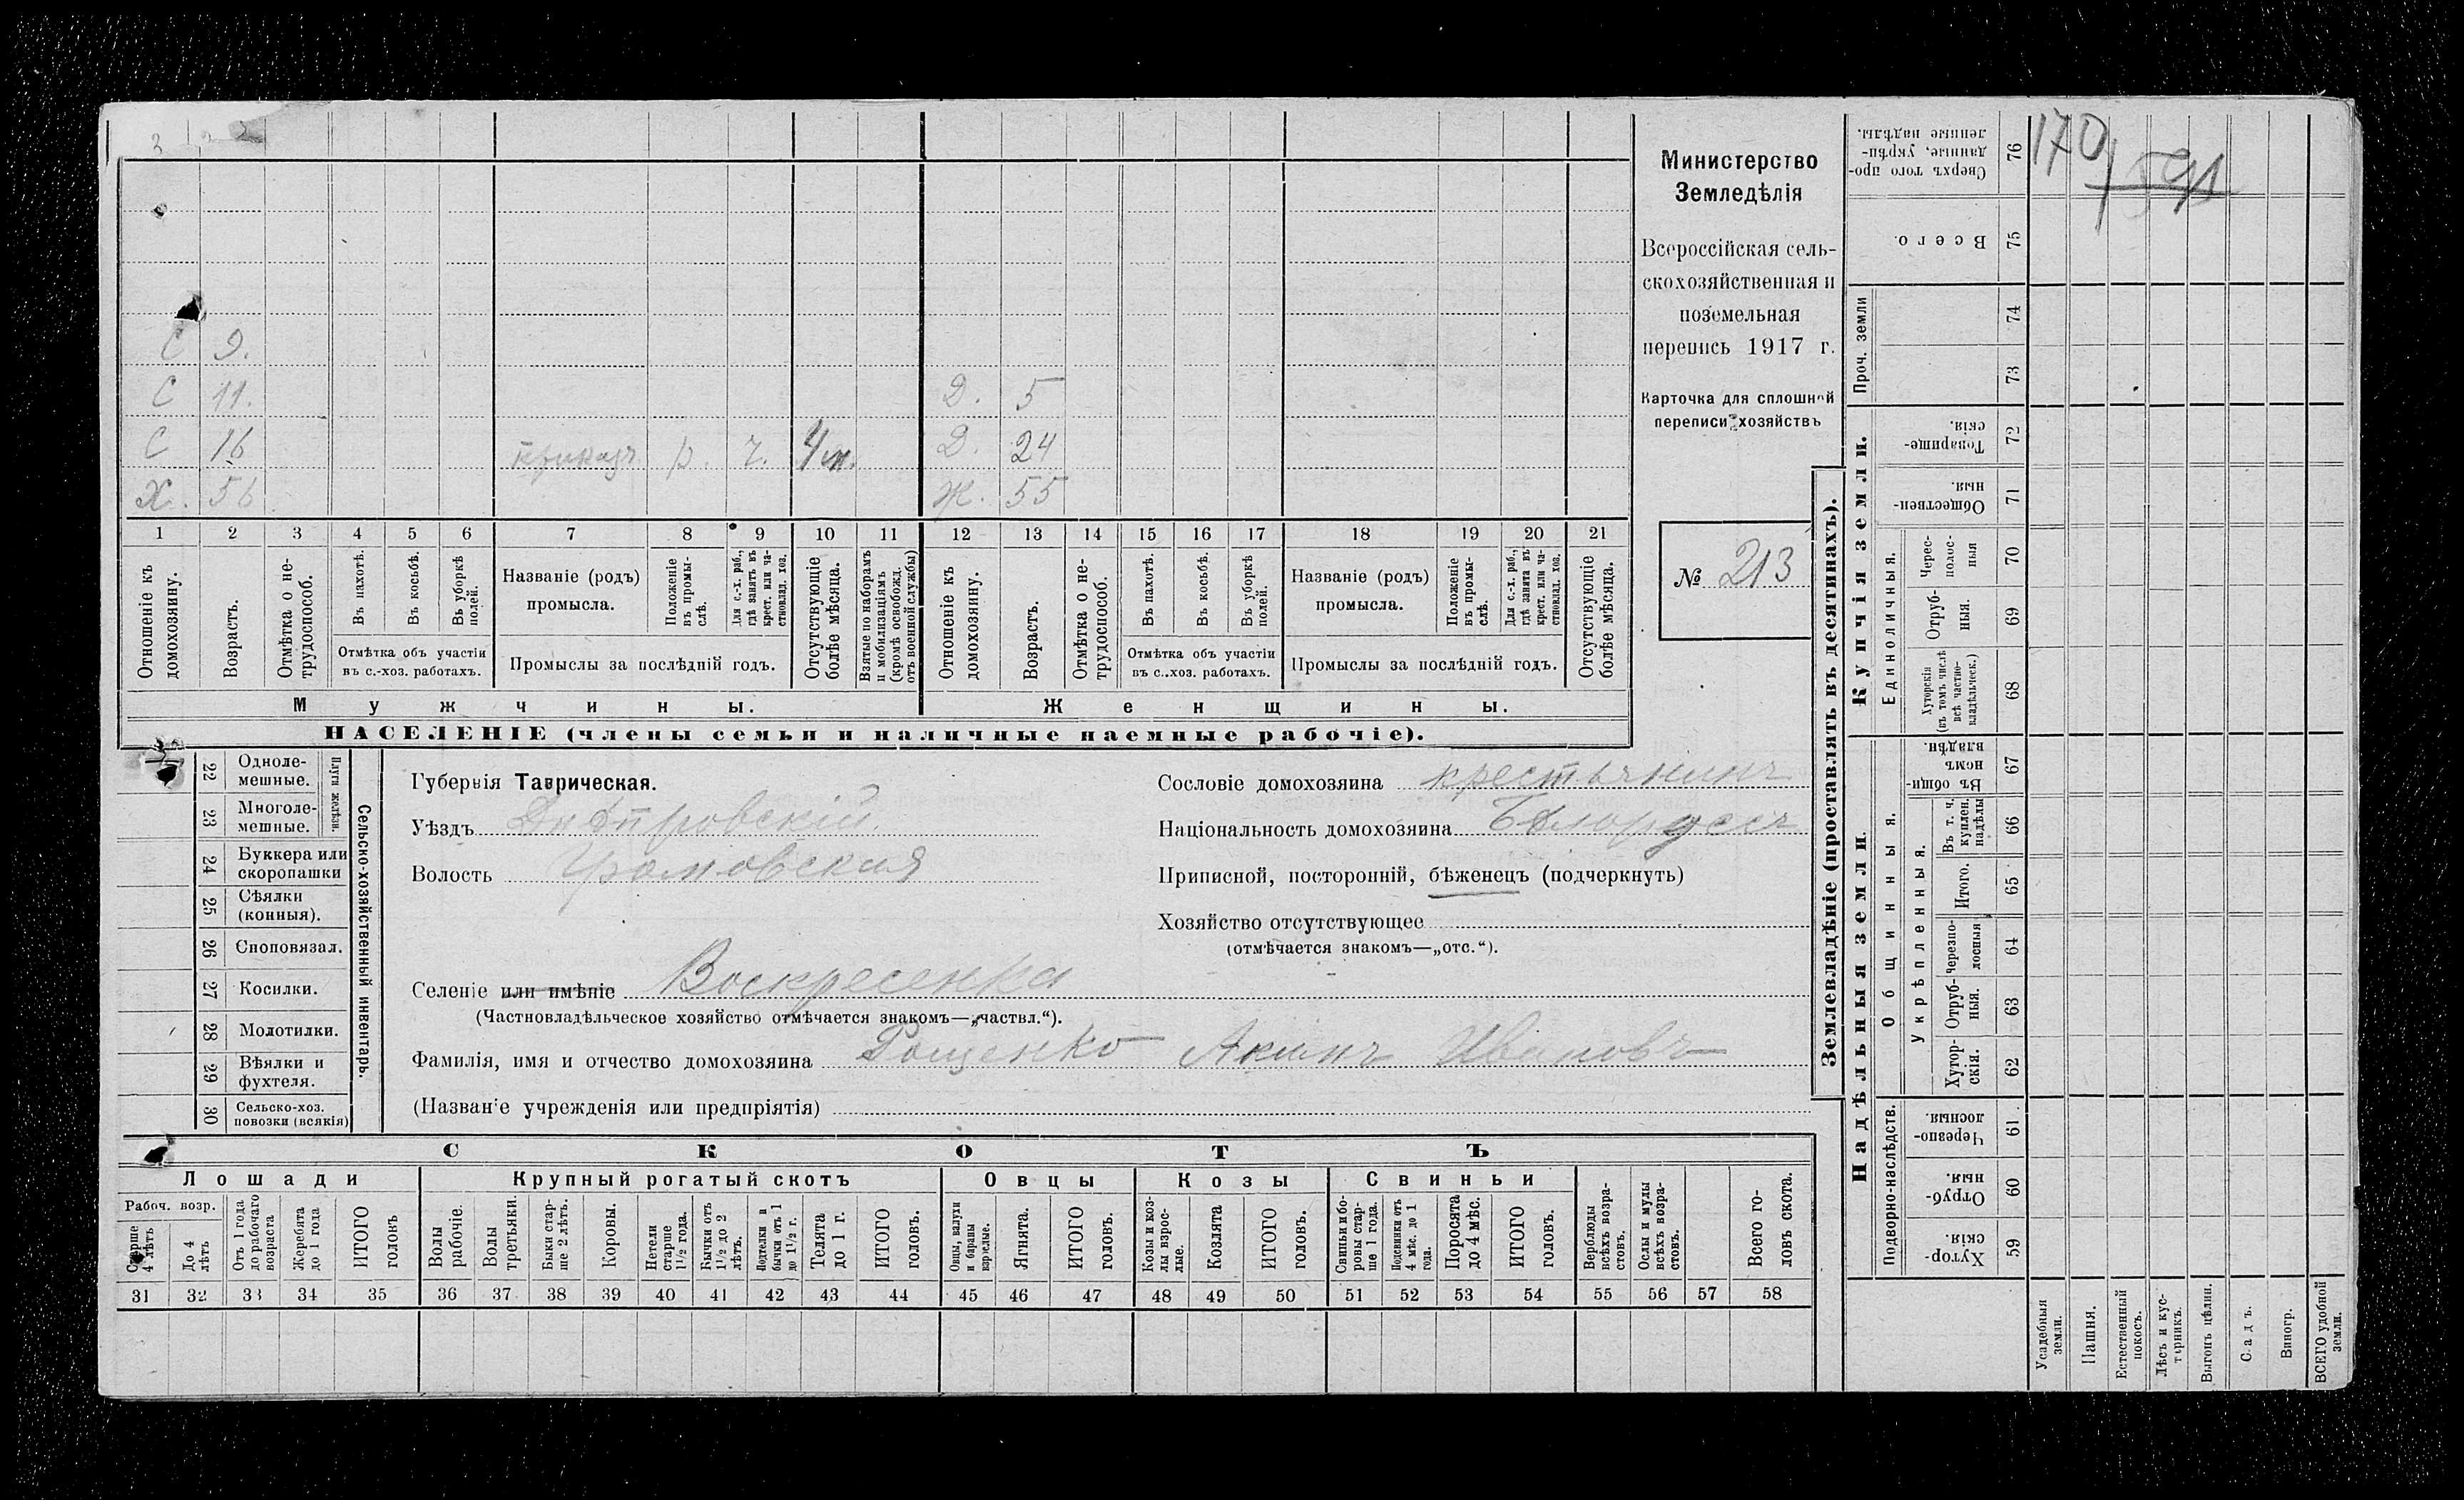 3 2 2
С 9.
С 11. Д. 5
С 16 приказч. р. ч. Д. 24
Х. 56 Ж. 55
1 2 3 4 5 6 7 8 9 10 11 12 13 14 15 16 17 18 19 20 21
Отношеніе къ домохозяину.
Возрастъ.
Отмѣтка о не-
трудоспособ.
Въ пахотѣ.
Въ косьбѣ.
Въ уборкѣ полей.
Отмѣтка объ участіи
въ с.-хоз. работахъ.
Названіе (родъ)
промысла.
Положеніе
въ промы-
слѣ.
Для с.-х. раб.,
гдѣ занятъ въ
крест. или ча-
стновлад. хоз.
Промыслы за послѣдній годъ.
Отсутствующіе
болѣе мѣсяца.
Взятые по наборамъ
и мобилизаціямъ
(кромѣ освобожд.
отъ военной службы)
Отношеніе къ
домохозяину.
Возрастъ.
Отмѣтка о не-
трудоспособ.
Въ пахотѣ.
Въ косьбѣ.
Въ уборкѣ
полей.
Отмѣтка объ участіи
въ с..хоз. работахъ.
Названіе (родъ)
промысла.
Положеніе
въ промы-
слѣ.
Для с.-х. раб.,
гдѣ занята въ
крест. или ча-
стновлад. хоз.
Промыслы за послѣдній годъ.
Отсутствующіе
болѣе мѣсяца.
Мужчины.
Женщины.
НАСЕЛЕНІЕ (члены семьи и наличные наемные рабочіе).
Министерство
Земледѣлія
Всероссійская сель-
скохозяйственная и
поземельная
перепись 1917 г.
Карточка для сплошной
переписи хозяйствъ
№ 213
22 Одноле-
мешные.
23 Многоле-
мешные.
Плуги желѣзн.
24 Буккера или
скоропашки
25 Сѣялки
(конныя).
26 Сноповязал.
27 Косилки.
28 Молотилки.
29 Вѣялки и
фухтеля.
30 Сельско-хоз.
повозки (всякія)
Сельско-хозяйственный инвентарь.
Губернія Таврическая.
Уѣздъ Днѣпровскій
Волость Громовская
Селеніе или имѣніе Воскресенка
(Частновладѣльческое хозяйство отмѣчается знакомъ—„частвл.“).
Фамилія, имя и отчество домохозяина Рощенко Акимъ Ивановъ
(Названіе учрежденія или предпріятія)
Сословіе домохозяина крестьянинъ
Національность домохозяина Бѣлоруссъ
Приписной, посторонній, бѣженецъ (подчеркнуть)
Хозяйство отсутствующее
(отмѣчается знакомъ—„отс.“).
СКОТЪ
Лошади
Крупный рогатый скотъ
Овцы
Козы
Свиньи
Рабоч. возр.
Старше
4 лѣтъ
До 4
лѣтъ
Отъ 1 года
до рабочаго
возраста
Жеребята
до 1 года
ИТОГО
головъ
Волы
рабочіе.
Волы
третьяки.
Быки стар-
ше 2 лѣтъ.
Коровы.
Нетели
старше
1 1/2 года.
Бычки отъ
1 1/2 до 2
лѣтъ.
Подтелки и
бычки отъ 1
до 1 1/2 г.
Телята
до 1 г.
ИТОГО
головъ.
Овцы, валухи
и бараны
взрослые.
Ягнята.
ИТОГО
головъ.
Козы и коз-
лы взрос-
лые.
Козлята
ИТОГО
головъ.
Свиньи и бо-
ровы стар-
ше 1 года.
Подсвинки отъ
4 мѣс. до 1
года.
Поросята
до 4 мѣс.
ИТОГО
головъ.
Верблюды
всѣхъ возра-
стовъ.
Ослы и мулы
всѣхъ возра-
стовъ.
Всего го-
ловъ скота.
31 32 33 34 35 36 37 38 39 40 41 42 43 44 45 46 47 48 49 50 51 52 53 54 55 56 57 58
Землевладѣніе (проставлять въ десятинахъ).
170/591
Сверхъ того про-
данные, укрѣп-
ленные надѣлы.
76
Всего.
75
Проч. земли
74
73
Купчія земли.
Товарище-
скія.
72
Обществен-
ныя.
71
Единоличныя.
Черес-
полос-
ныя
70
Отруб-
ныя.
69
Хуторскія
(въ томъ числѣ
всѣ частно-
владѣльческ.)
68
Надѣльныя земли.
Общинныя.
Въ общи-
номъ
владѣн.
67
Укрѣпленныя.
Въ т. ч.
куплен.
надѣлы
66
Итого.
65
Черезпо-
лосныя
64
Отруб-
ныя.
63
Хутор-
скія.
62
Подворно-наслѣдств.
Черезпо-
лосныя.
61
Отруб-
ныя.
60
Хутор-
скія.
59
Усадебныя
земли.
Пашня.
Естественный
покосъ.
Лѣсъ и кус-
тарникъ.
Выгонъ цѣлин.
Садъ.
Виногр.
ВСЕГО удобной
земли.